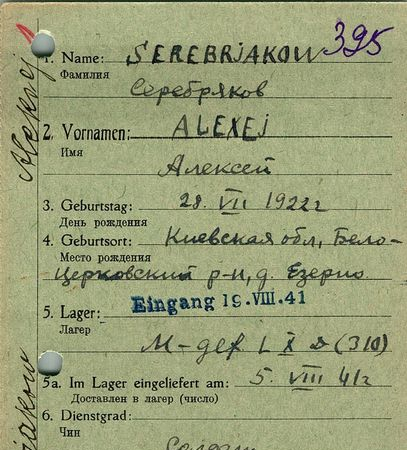 395
1. Name: SEREBRJAKOW
Фамилия
Серебряков
2. Vornamen: ALEXEJ
Имя
Алексей
3. Geburtstag: 28. VII 1922 г
День рождения
4. Geburtsort: Киевская обл, Бело-
Место рождения
церковский р-н, д. Езерно
5. Lager: Eingang 19. VIII. 41
Лагерь
M-gef. L X D (310)
5a. Im Lager eingeliefert am: 5. VIII 41 г
Доставлен в лагерь (число)
6. Dienstgrad:
Чин
Солдат